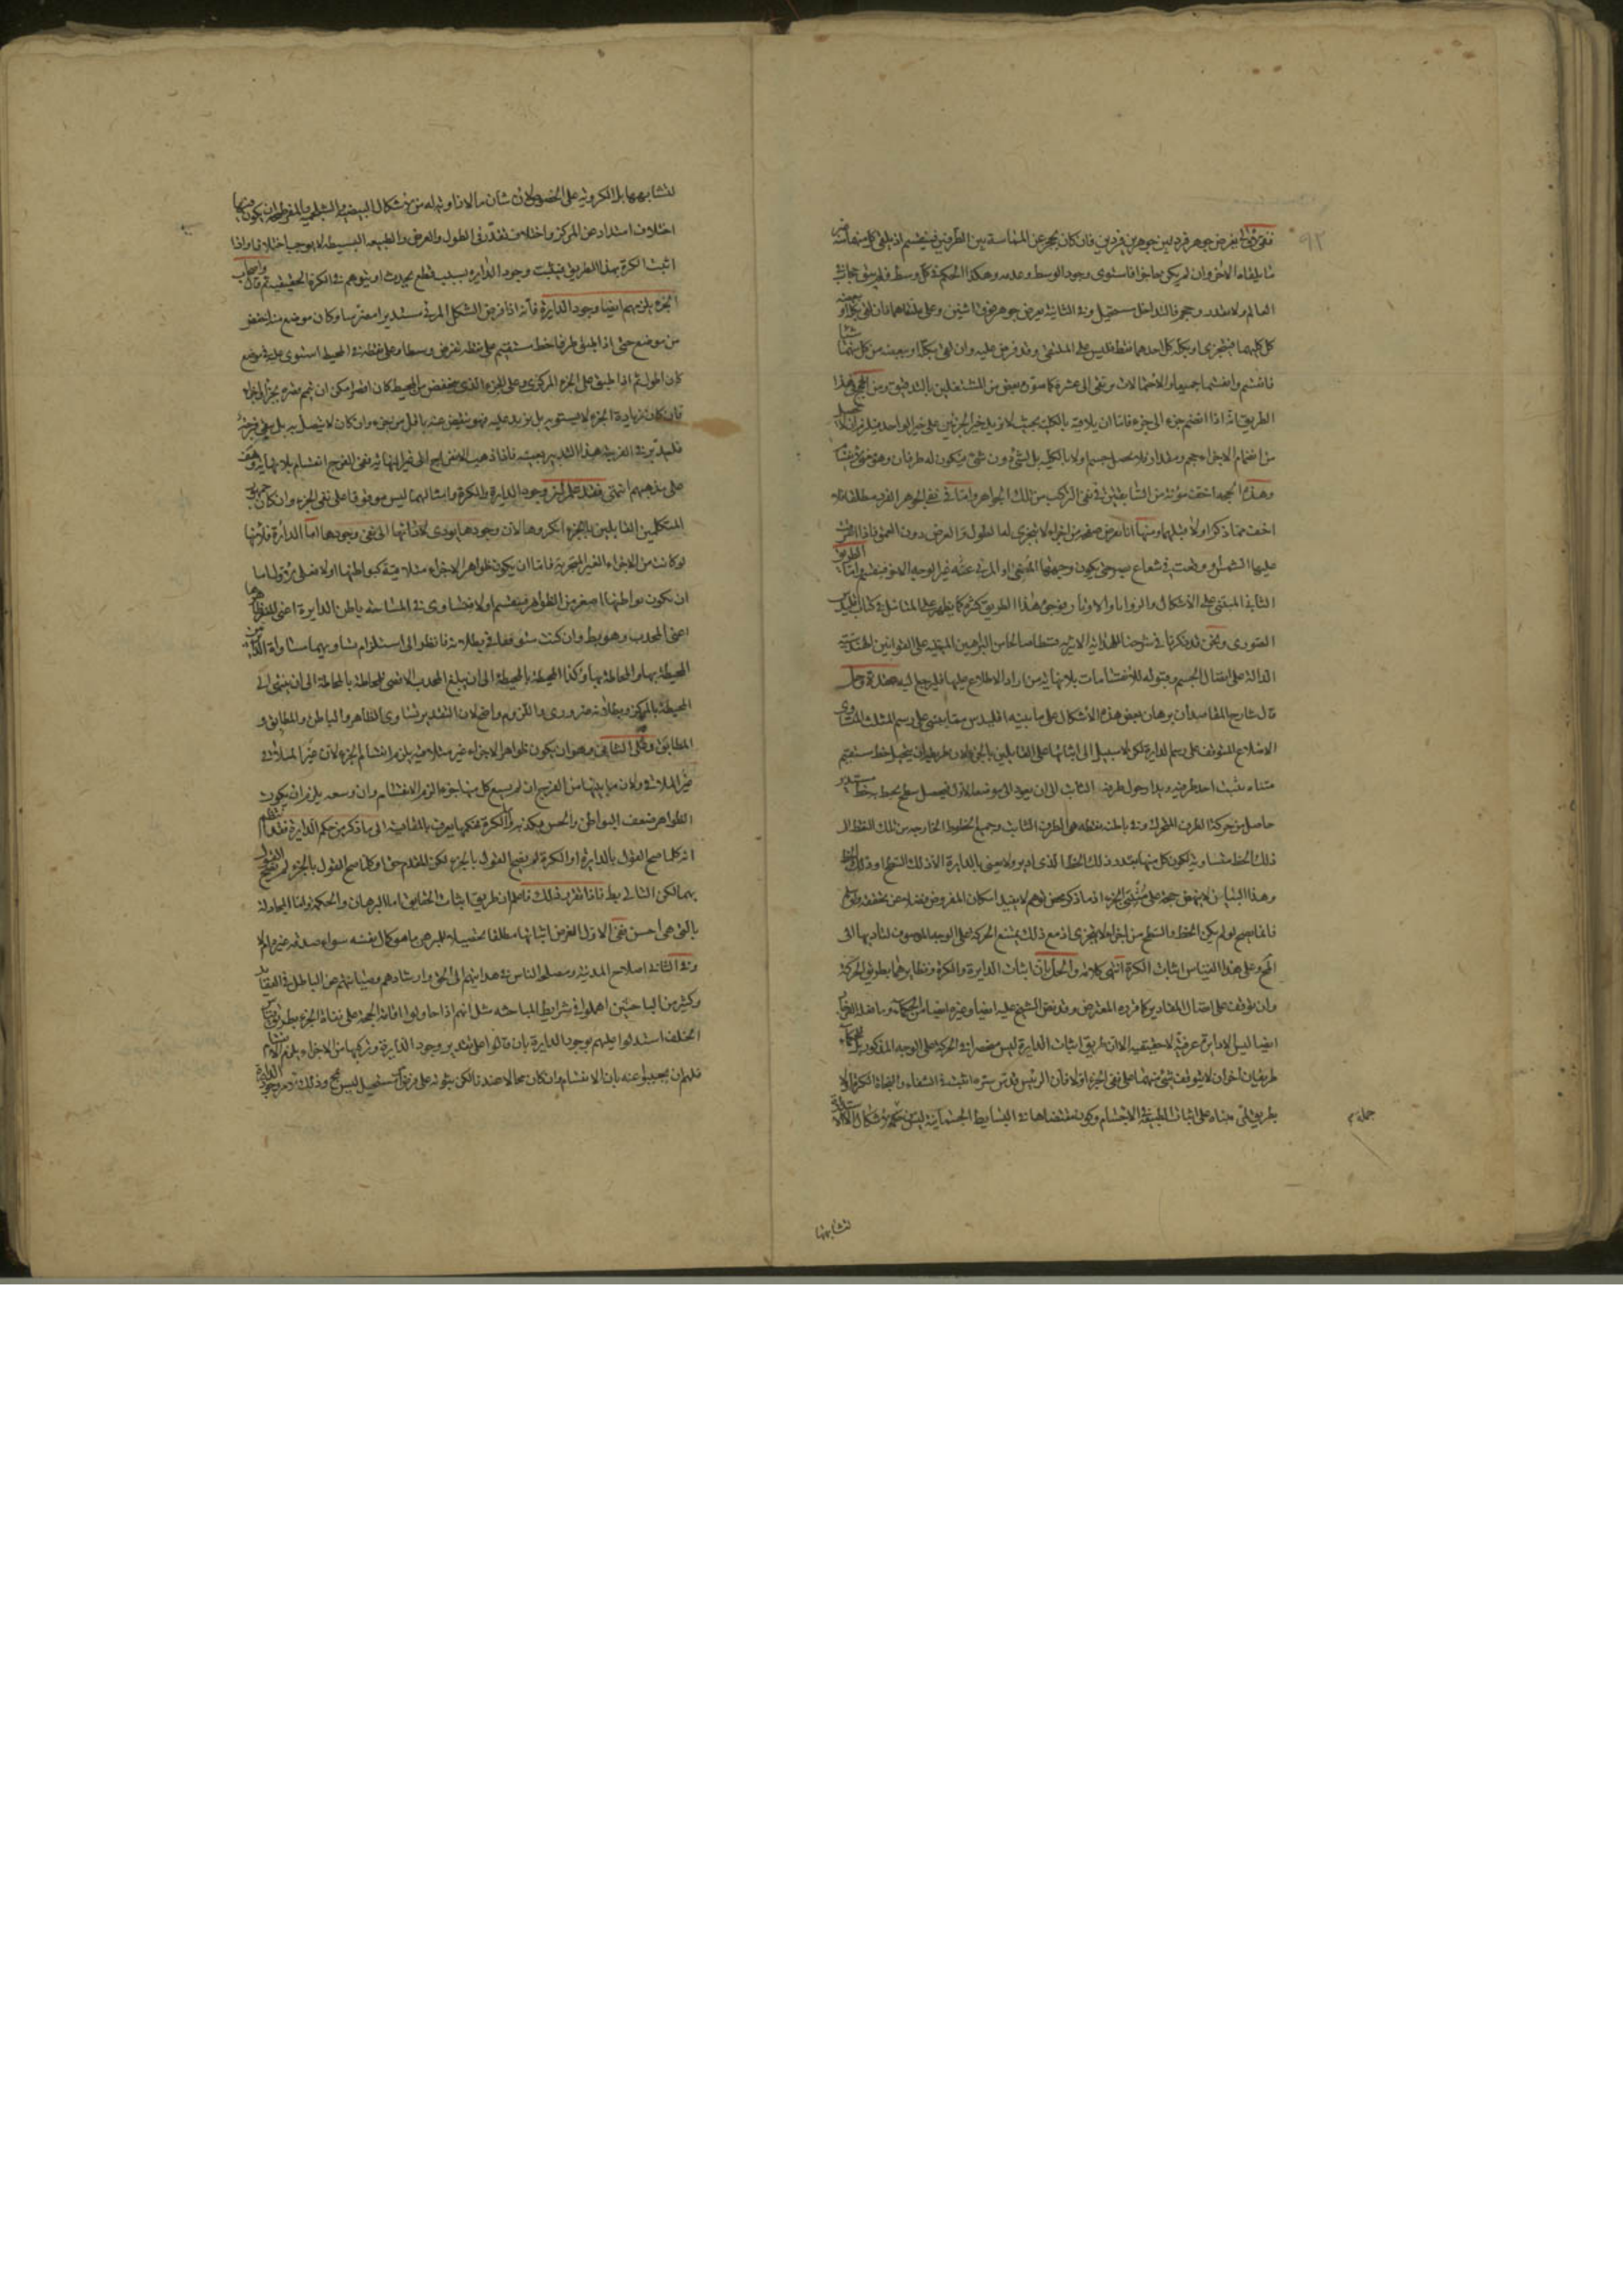 ٩٢
نفرض جوهر فرد بين جوهرين فردين فان كان يحجز عن المماسة بين الطرفين فينقسم اذ يلقى كل منهما منه
ما يلقاه الاخر وان لم يكن حاجزا فاستوى وجود الوسط وعدمه وهكذا الحكم في كل وسط فلم يبق حجاب في
العالم ولا مقدار وحجم فالتداخل مستحيل وفي الثانية يفرض جوهر فوق اثنين وعلى ملتقاهما فان لقى بكله او ببعضه
كل كليهما فيتجزى او بكله كل احدهما فقط فليس على الملتقى وقد فرض عليه وان لقى بكله او ببعضه من كل منهما شيئا
فانقسم وانقسما جميعا والاحتمالات ترتقى الى عشرة كما صوره بعض من المشتغلين بالتدقيق ومن الحجج في هذا
الطريق انه اذا انضم جزء الى جزء فاما ان يلاقيه بالكلية بحيث لا يزيد حيز الجزئين على حيز الواحد فيلزم ان لا يحصل
من انضمام الاجزاء حجم ومقدار فلا يحصل جسم اولا بالكلية بل لشئ دون شئ فيكون له طرفان وهو معنى الانقسام
وهذه الحجة اخف مؤنة من السابقتين في نفى التركب من تلك الجواهر واما في نفى الجوهر الفرد مطلقا فلا
اخف مما ذكر اولا مثلهما ومنها انا نفرض صفحة من اجزاء لا يتجزى لها الطول والعرض دون العمق فاذا اشرقت
عليها الشمس او وقعت في شعاع بصر حتى يكون وجهها المضئ او المرئى غير الوجه الاخر فينقسم واما الطريق
الثانى المبتنى على الاشكال والزوايا والاوتار فوجوه هذا الطريق كثيرة كما يظهر على المتأمل في كتاب اقليدس
الصورى ونحن قد ذكرنا في شرحنا للهداية الاثيرية قسطا صالحا من البراهين المبتنية على القوانين الهندسية
الدالة على اتصال الجسم وقبوله للانقسامات بلا نهاية من اراد الاطلاع عليها فليرجع اليه عقدة وحل
قال شارح المقاصد ان برهان بعض هذه الاشكال على ما بينه اقليدس مما يبتنى على رسم المثلث المتساوى
الاضلاع المتوقف على رسم الدايرة لكن لا سبيل الى اثباتها على القائلين بالجزء لان طريقه ان يتخيل خط مستقيم
متناه يثبت احد طرفيه ويدار حول طرفه الثابت الى ان يعود الى موضعه الاول فيحصل سطح يحيط به خط مستدير
حاصل من حركة الطرف المتحرك وفي باطنه نقطة هى الطرف الثابت وجميع الخطوط الخارجة من تلك النقطة الى
ذلك الخط متساوية لكون كل منها بقدر ذلك الخط الذى ادير ولا يعنى بالدايرة الا ذلك السطح او ذلك الخط
وهذا البيان لا ينهض حجة على مثبتى الجزء اذ ما ذكر محض توهم لا يفيد امكان المفروض فضلا عن تحققه ولو سلم
فانما يصح لو لم يكن الخط والسطح من اجزاء لا يتجزى اذ مع ذلك يمتنع الحركة على الوجه الموصوف لتأديها الى
المح وعلى هذا القياس اثبات الكرة انتهى كلامه والحل بان اثبات الدايرة والكرة ونظايرهما بطريق الحركة
وان توقف على اتصال المقادير كما قرره المعترض وقد نص الشيخ عليه ايضا وغيره ايضا من الحكماء
ايضا ليس الا دايرة عرفية لا حقيقية الا ان طريق اثبات الدايرة ليس منحصرا في الحركة على الوجه المذكور بل للحكماء
طريقان اخران لا يتوقف شئ منهما على نفى الجزء اولا فان الرئيس قدس سره اثبت في الشفاء والنجاة الكرة اولا
بطريق لمى مبناه على اثبات الطبيعة في الاجسام وكون مقتضاها في البسايط الجسمانية ليس من الاشكال الا الاستدارة
لتشابهها
لتشابهها بل الكروية على الخصوص لان شان ما لا زاوية له من الاشكال البيضى والشلجمى والمفرطح ان يكون فيها
اختلاف امتداد عن المركز واختلاف تقدر في الطول والعرض والطبيعة البسيطة لا يوجب اختلافا واذا
اثبت الكرة بهذا الطريق فيثبت وجود الدايرة بسبب قطع يحدث او يتوهم في الكرة الحقيقية ثم قال واصحاب
الجزء يلزمهم ايضا وجود الدايرة فانه اذا فرض الشكل المرئى مستديرا مضرسا وكان موضع منه اخفض
من موضع حتى اذا اطبق طرفا خط مستقيم على نقطة تفرض وسطا وعلى نقطة في المحيط استوى عليه في موضع
كان اطول ثم اذا طبق على الجزء المركزى وعلى الجزء الذى ينخفض من المحيط كان اقصر امكن ان يتمم قصره بجزء او اجزاء
فان كان زيادة الجزء لا يسويه بل يزيد عليه فهو ينقص عنه باقل من جزء وان كان لا يتصل به بل يبقى فرجة
فليدبر في الفرجة هذا التدبير بعينه فاذا ذهب الانفراج الى غير النهاية ففى الفرج انقسام بلا نهاية وهف
على مذهبهم انتهى فقد علم ان وجود الدايرة والكرة وامثالهما ليس موقوفا على نفى الجزء وان كان جمهور
المتكلمين القائلين بالجزء انكروها لان وجودها يؤدى لاذاتها الى نفى وجودها اما الدائرة فلانها
لو كانت من الاجزاء الغير المتجزية فاما ان يكون ظواهر الاجزاء متلاقية كبواطنها اولا فعلى الاول اما
ان يكون بواطنها اصغر من الظواهر فينقسم اولا فتساوى في المساحة باطن الدايرة اعنى المقعر ظاهرها
اعنى المحدب وهو بط وان كنت في بطلانه فانظر الى استلزام تساويهما مساواة الدايرة
المحيطة بها والمحاطة بها وكذا المحيطة بالمحيطة الى ان يبلغ المحدب الاقصى للمحاطة بالمحاطة الى ان ينتهى الى
المحيطة بالمركز وبطلانه ضرورى واللزوم واضح لان التقدير تساوى الظاهر والباطن والمطابق و
المطابق وعلى الثانى وهو ان يكون ظواهر الاجزاء غير متلاقية يلزم انقسام الجزء لان غير الملاقى
غير الملاقى ولان ما بينها من الفرج ان لم يسع كل منها جزء لزم الانقسام وان وسعه يلزم ان يكون
الظواهر ضعف البواطن والحس يكذبه واما الكرة فحكمها يعرف بالمقايسة الى ما ذكر من حكم الدايرة فظهر
انه كلما صح القول بالدايرة او الكرة لم يصح القول بالجزء لكن المقدم حق او كلما صح القول بالجزء لم يصح القول
بهما لكن التالى بط فاذا تقرر ذلك فاعلم ان طريق اثبات الحقايق اما البرهان والحكمة واما المجادلة
بالتى هى احسن ففى الاول الغرض اثباتها مطلقا تحصيلا للمبرهن ما هو كمال نفسه سواء صدقه غيره ام لا
وفي الثانى اصلاح المدنية ومصلحة الناس في هدايتهم الى الحق وارشادهم وصيانتهم عن الباطل في العقايد
وكثير من الباحثين اهملوا في شرايط المباحثة مثل انهم اذا حاولوا اقامة الحجة على نفاة الجزء بطريق قياس
الخلف استدلوا عليهم بوجود الدايرة بان قالوا على تقدير وجود الدايرة وتركبها من الاجزاء يلزم الانقسام
فلهم ان يجيبوا عنه بان الانقسام وان كان محالا عندنا لكن ثبوته على فرض مستحيل ليس مح وذلك